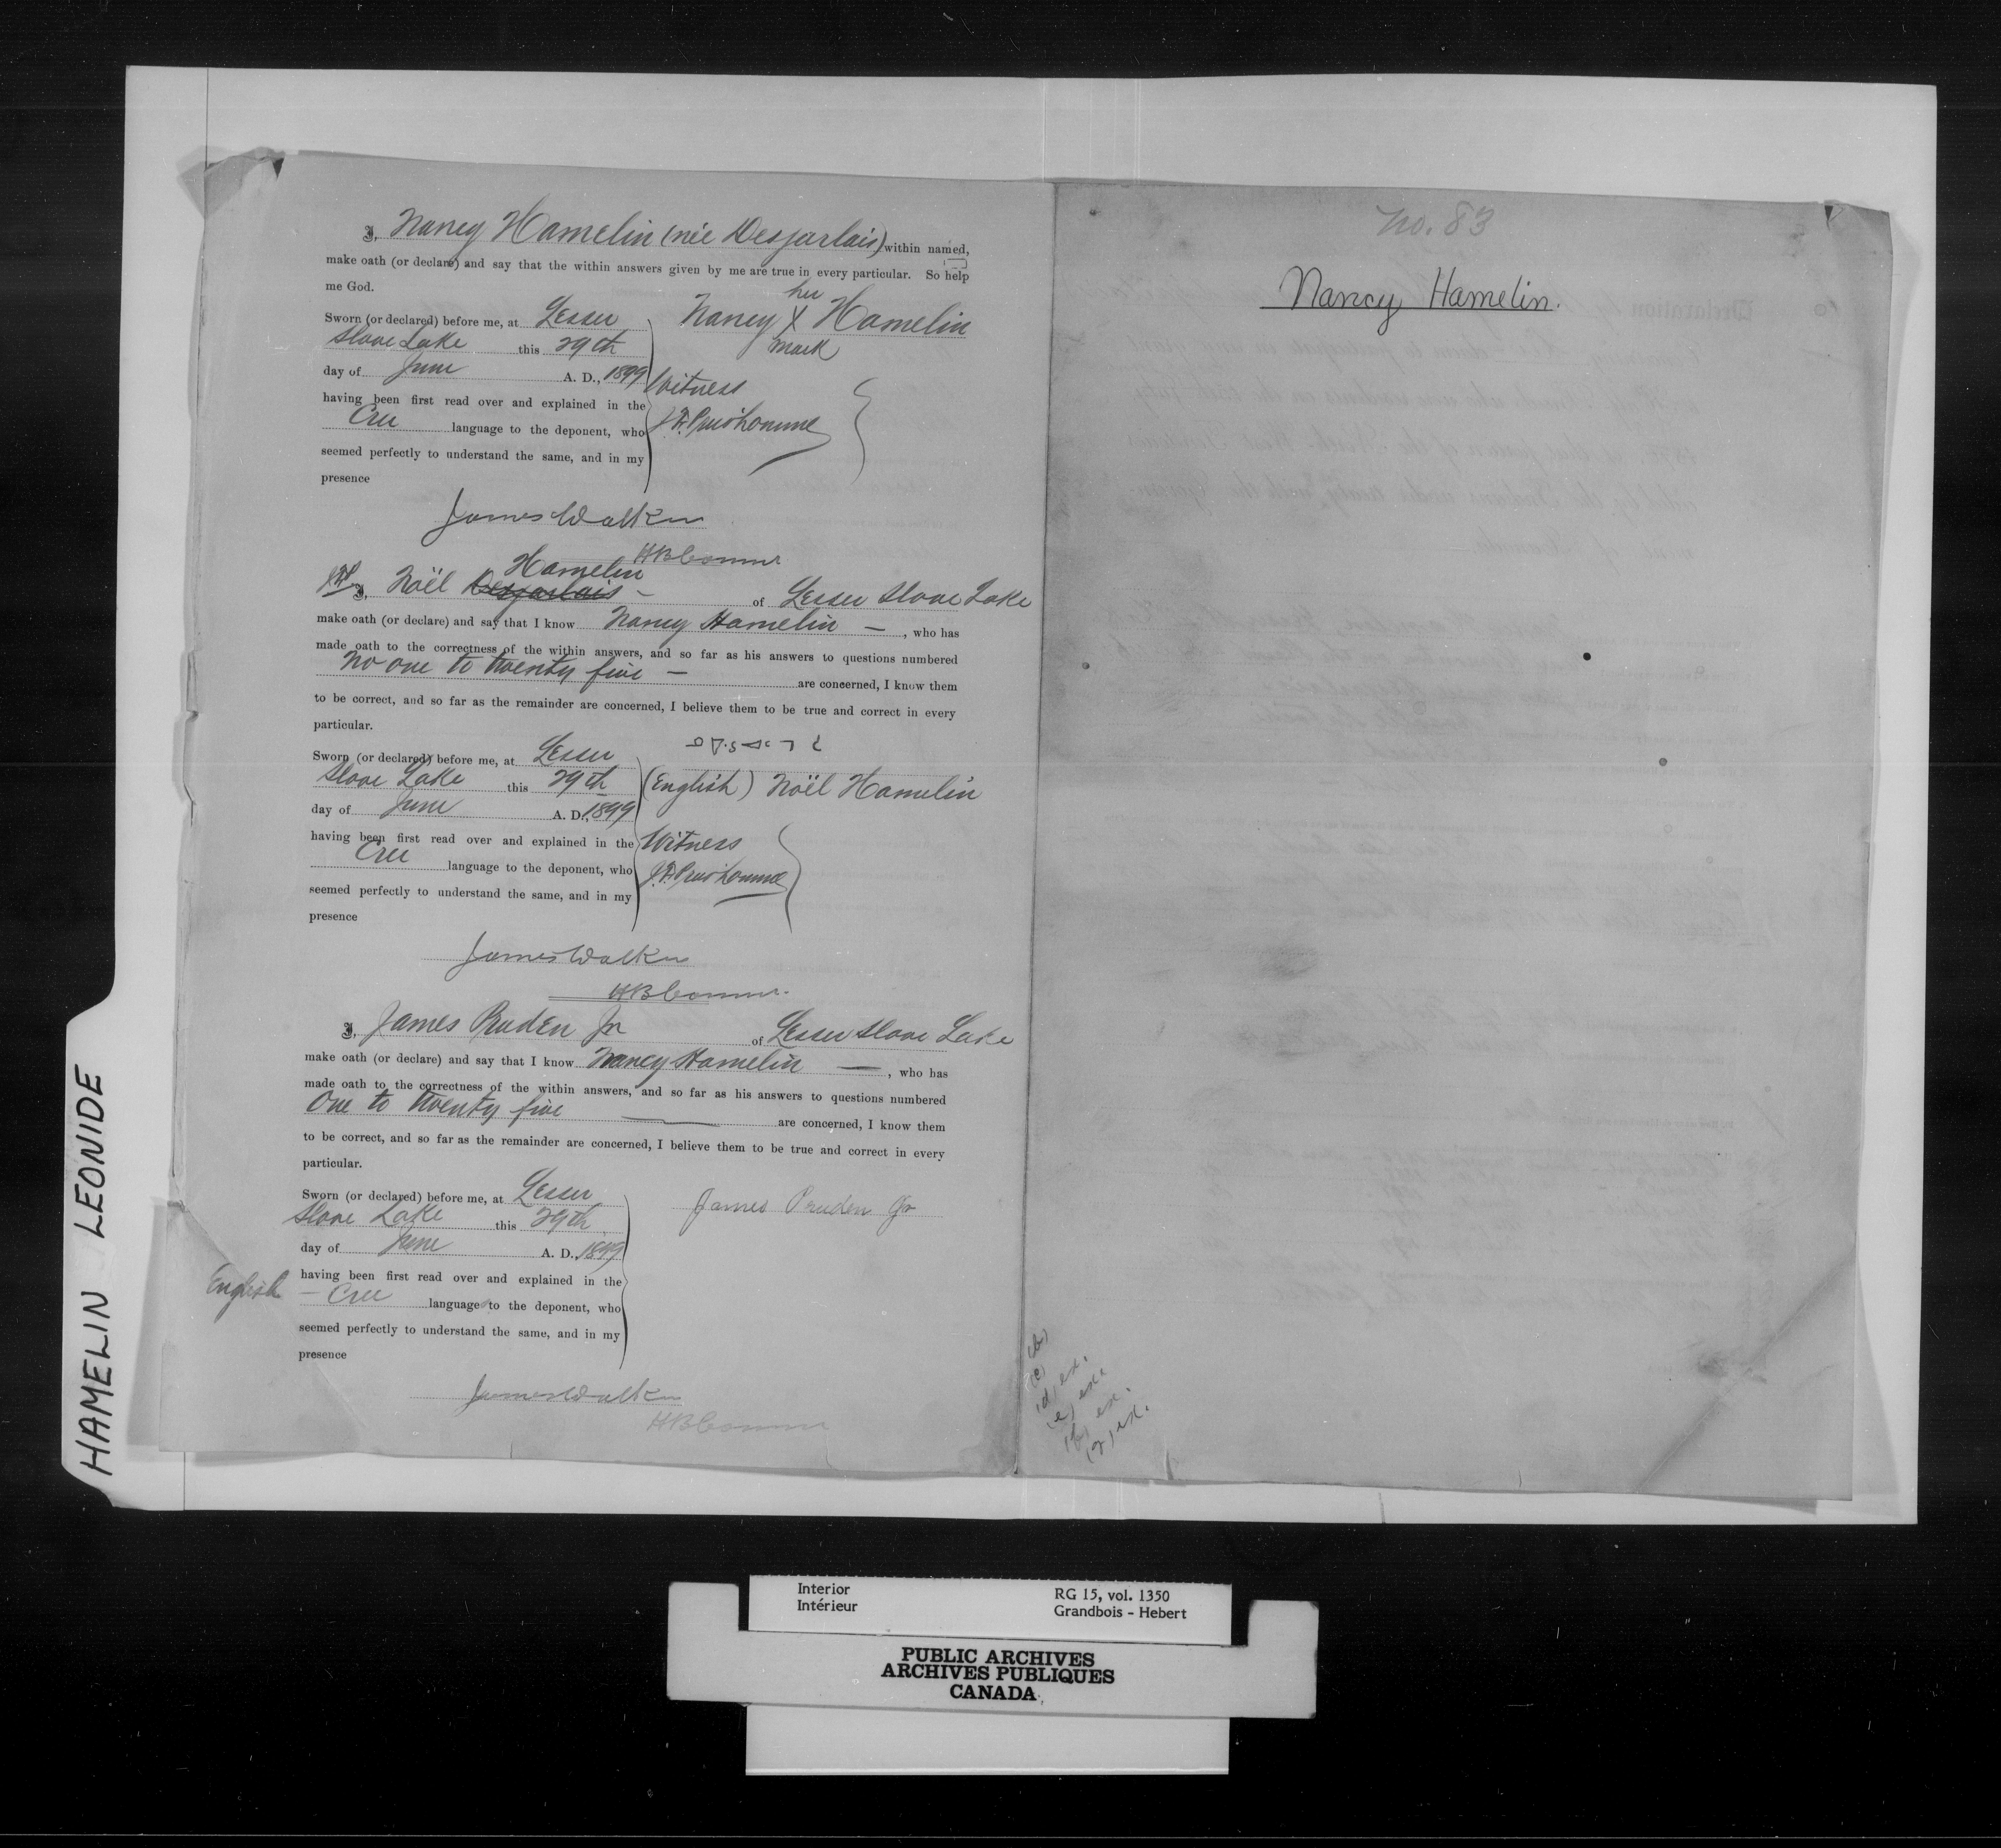 I, Nancy Hamelin (née Desjarlais) within named,
make oath (or declare) and say that the within answers given by me are true in every particular. So help
me God.
Sworn (or declared) before me, at Lesser
Slave Lake this 29th
day of June A. D., 1899
having been first read over and explained in the
Cree language to the deponent, who
seemed perfectly to understand the same, and in my
presence
her
Nancy X Hamelin
mark
Witness
J. F. Prud'homme
James Walker
H B Comr
Hamelin
I, Noël Desjarlais – of Lesser Slave Lake
make oath (or declare) and say that I know Nancy Hamelin – , who has
made oath to the correctness of the within answers, and so far as his answers to questions numbered
No one to twenty five – are concerned, I know them
to be correct, and so far as the remainder are concerned, I believe them to be true and correct in every
particular.
Sworn (or declared) before me, at Lesser
Slave Lake this 29th
day of June A. D., 1899
having been first read over and explained in the
Cree language to the deponent, who
seemed perfectly to understand the same, and in my
presence
(English) Noël Hamelin
Witness
J. F. Prud'homme
James Walker
H B Comr
I, James Pruden Jr of Lesser Slave Lake
make oath (or declare) and say that I know Nancy Hamelin — , who has
made oath to the correctness of the within answers, and so far as his answers to questions numbered
One to twenty five — are concerned, I know them
to be correct, and so far as the remainder are concerned, I believe them to be true and correct in every
particular.
Sworn (or declared) before me, at Lesser
Slave Lake this 29th
day of June A. D., 1899
having been first read over and explained in the
English – Cree language to the deponent, who
seemed perfectly to understand the same, and in my
presence
James Pruden Jr
James Walker
H B Comr
No. 83
Nancy Hamelin.
(b)
(c)
(d) ex.
(e) ex.
(f) ex.
(g) ex.
HAMELIN LEONIDE
Interior
Intérieur
RG 15, vol. 1350
Grandbois - Hebert
PUBLIC ARCHIVES
ARCHIVES PUBLIQUES
CANADA